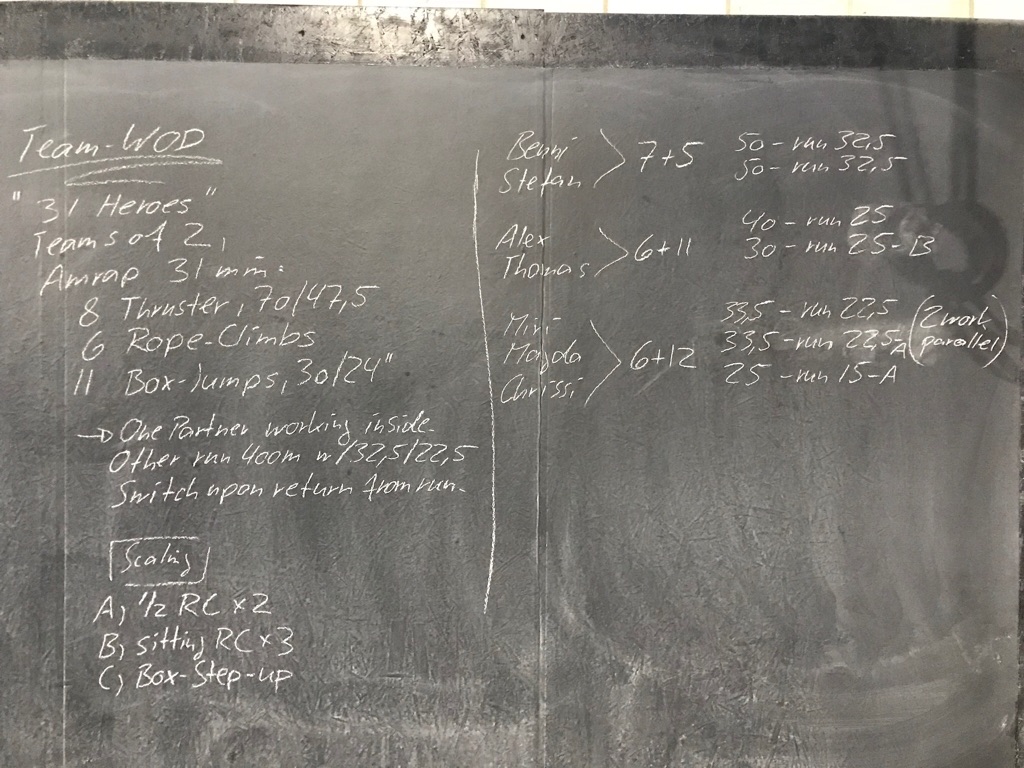 Team-WOD
"31 Heroes"
Teams of 2,
Amrap 31 min:
8 Thruster, 70/47,5
6 Rope-Climbs
11 Box-Jumps, 30/24"
→ One Partner working inside.
Other run 400m w/32,5/22,5
Switch upon return from run.
Scaling
A, 1/2 RC x 2
B, sitting RC x 3
C, Box-Step-up
Benni
Stefan
7+5
50 - run 32,5
50 - run 32,5
Alex
Thomas
6+11
40 - run 25
30 - run 25-B
Miri
Magda
Chrissi
6+12
33,5 - run 22,5
33,5 - run 22,5-A
25 - run 15-A
(2 work
parallel)